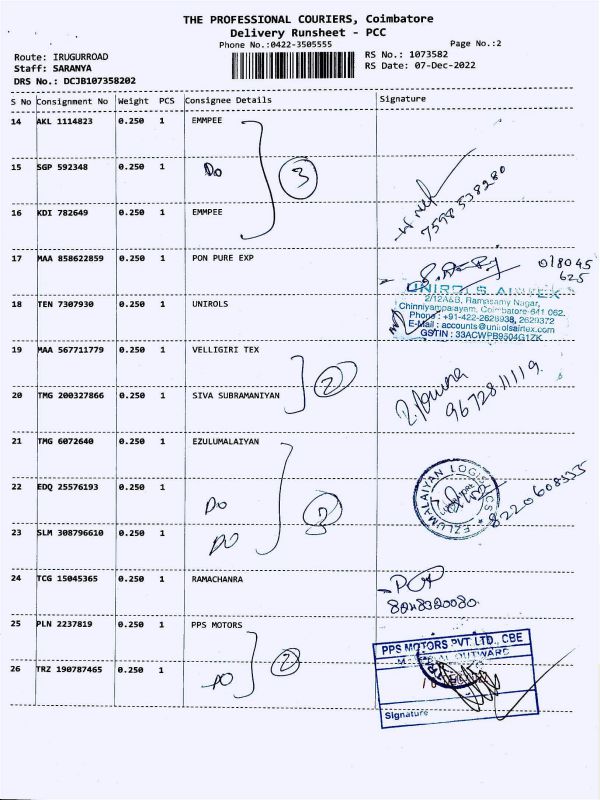 THE PROFESSIONAL COURIERS, Coimbatore
Delivery Runsheet - PCC
Phone No.:0422-3505555
Page No.:2
Route: IRUGURROAD
RS No.: 1073582
Staff: SARANYA
RS Date: 07-Dec-2022
DRS No.: DCJB107358202
S No Consignment No Weight PCS Consignee Details Signature
14 AKL 1114823 0.250 1 EMMPEE
15 SGP 592348 0.250 1 Do
3
16 KDI 782649 0.250 1 EMMPEE
7598538280
17 MAA 858622859 0.250 1 PON PURE EXP
018045
625
UNIROLS AIRTEX
18 TEN 7307930 0.250 1 UNIROLS
2/12A&B, Ramasamy Nagar,
Chinniyampalayam, Coimbatore-641 062.
Phone : +91-422-2626938, 2629372
E-Mail : accounts@unirolsairtex.com
GSTIN : 33ACWPB9504G1ZK
19 MAA 567711779 0.250 1 VELLIGIRI TEX
2
20 TMG 200327866 0.250 1 SIVA SUBRAMANIYAN
9672811119
21 TMG 6072640 0.250 1 EZULUMALAIYAN
EZLUMALAIYAN LOGISTICS
22 EDQ 25576193 0.250 1 Do
8220608335
23 SLM 308796610 0.250 1 DO
24 TCG 15045365 0.250 1 RAMACHANRA
8248320080
25 PLN 2237819 0.250 1 PPS MOTORS
PPS MOTORS PVT. LTD., CBE
OUTWARD
2
26 TRZ 190787465 0.250 1 DO
Signature